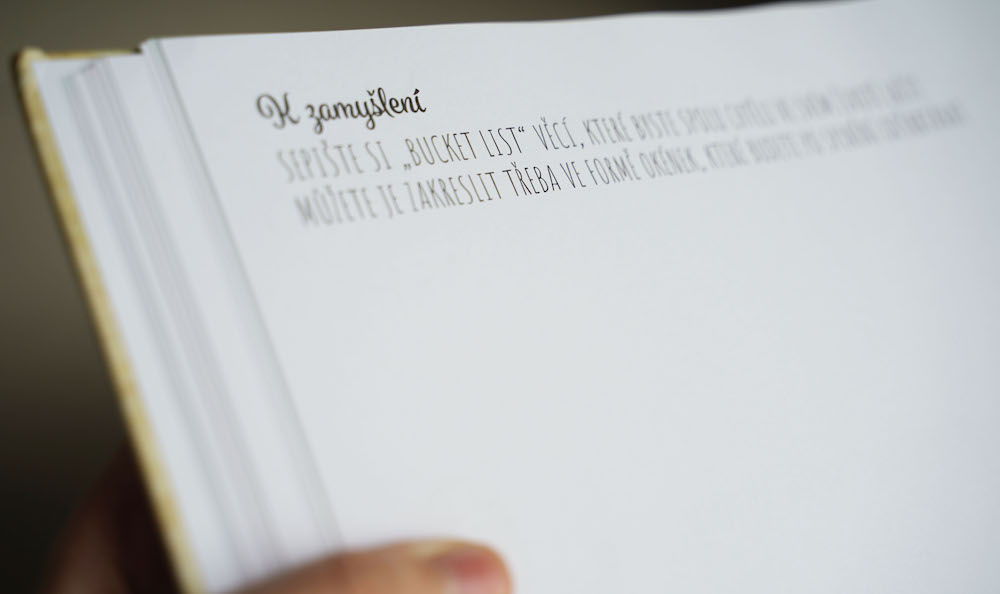 K zamyšlení
SEPIŠTE SI „BUCKET LIST“ VĚCÍ, KTERÉ BYSTE SPOLU CHTĚLI VE SVÉM
MŮŽETE JE ZAKRESLIT TŘEBA VE FORMĚ OKÉNEK, KTERÉ BUDETE PO SPLNĚNÍ